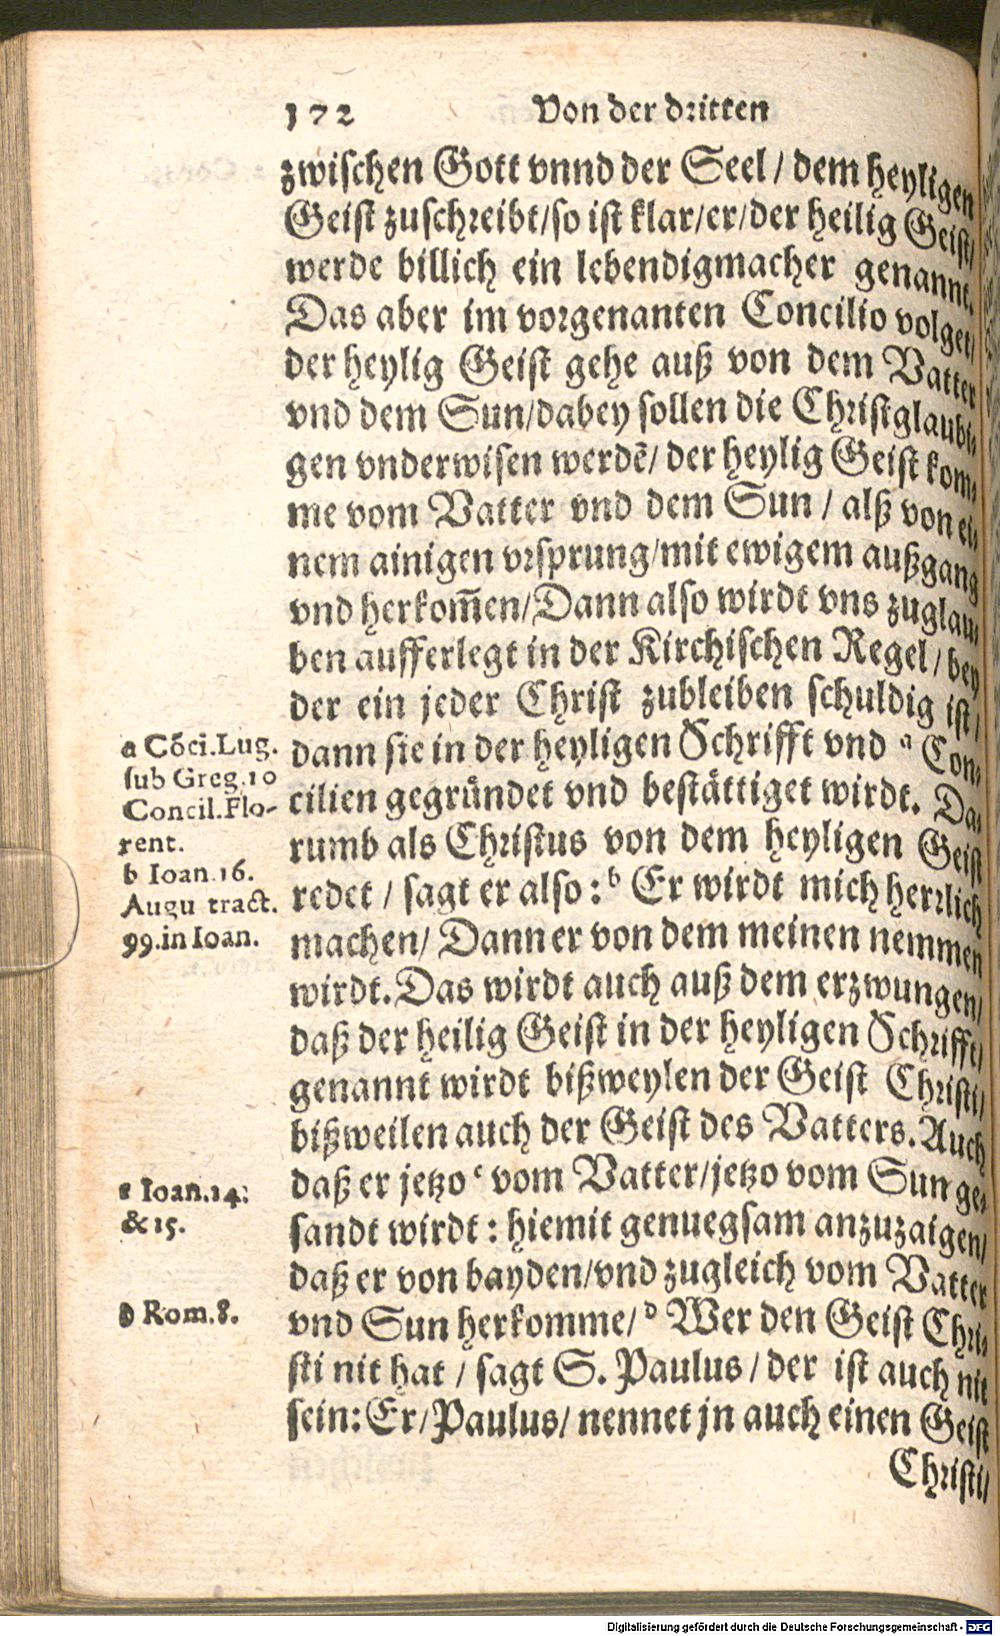 172 Von der dritten
zwischen Gott vnnd der Seel / dem heyligen
Geist zuschreibt/so ist klar/er/der heilig Geist/
werde billich ein lebendigmacher genannt.
Das aber im vorgenanten Concilio volget/
der heylig Geist gehe auß von dem Vatter
vnd dem Sun/dabey sollen die Christglaubi-
gen vnderwisen werdẽ/ der heylig Geist kom-
me vom Vatter vnd dem Sun / alß von ei-
nem ainigen vrsprung/mit ewigem außgang
vnd herkom̃en/Dann also wirdt vns zuglau-
ben aufferlegt in der Kirchischen Regel/ bey
der ein jeder Christ zubleiben schuldig ist/
dann sie in der heyligen Schrifft vnd a Con-
cilien gegründet vnd bestättiget wirdt. Da-
rumb als Christus von dem heyligen Geist
redet / sagt er also: b Er wirdt mich herrlich
machen/ Dann er von dem meinen nemmen
wirdt. Das wirdt auch auß dem erzwungen/
daß der heilig Geist in der heyligen Schrifft/
genannt wirdt bißweylen der Geist Christi/
bißweilen auch der Geist des Vatters. Auch
daß er jetzo c vom Vatter/jetzo vom Sun ge-
sandt wirdt: hiemit genuegsam anzuzaigen/
daß er von bayden/vnd zugleich vom Vatter
vnd Sun herkomme/ d Wer den Geist Chri-
sti nit hat / sagt S. Paulus / der ist auch nit
sein: Er/Paulus/ nennet jn auch einen Geist
Christi/
a Cõci.Lug.
sub Greg.10
Concil.Flo-
rent.
b Ioan.16.
Augu tract.
99.in Ioan.
c Ioan.14.
& 15.
d Rom.8.
Digitalisierung gefördert durch die Deutsche Forschungsgemeinschaft - DFG